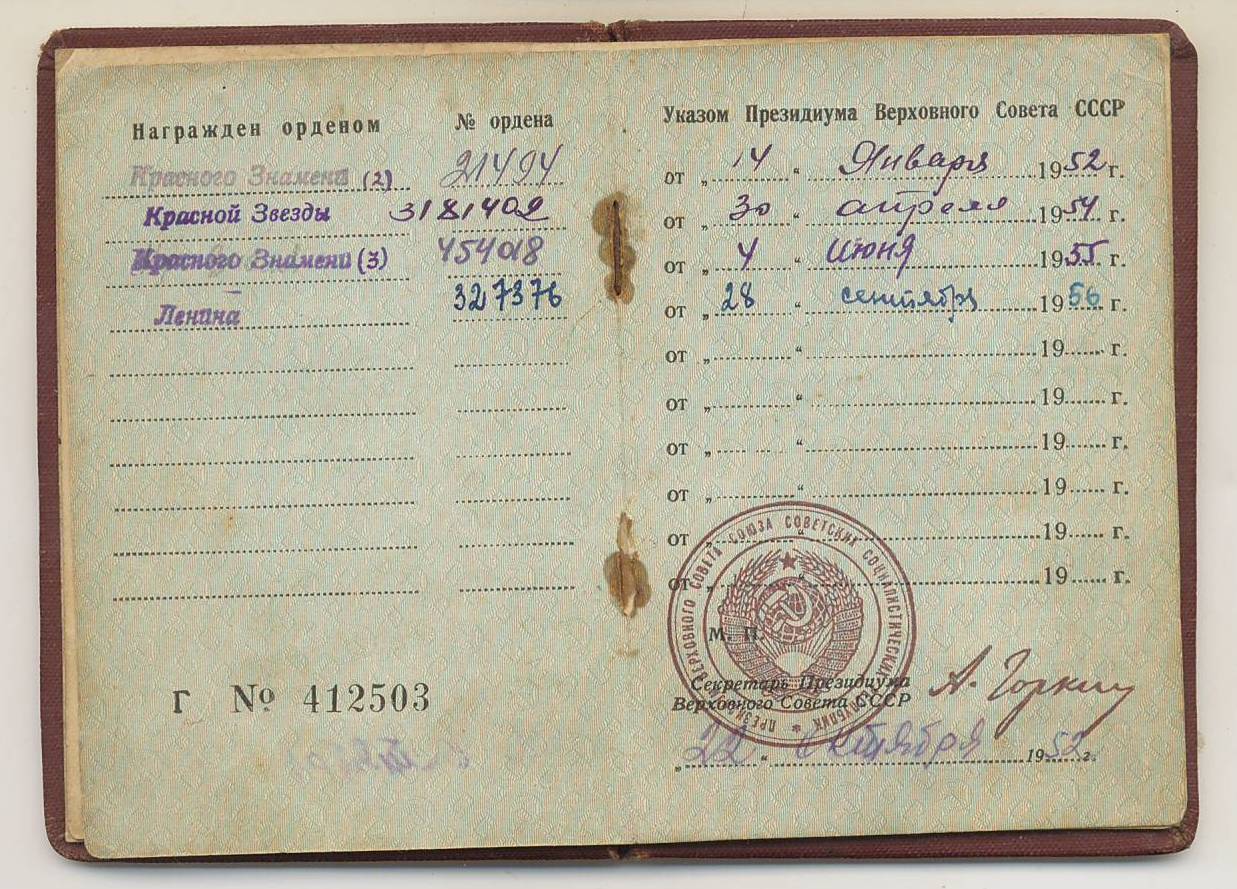 Награжден орденом № ордена Указом Президиума Верховного Совета СССР
Красного Знамени (2) 21494 от „ 14 “ Января 1952 г.
Красной Звезды 3181402 от „ 30 “ апреля 1954 г.
Красного Знамени (3) от „ 4 “ Июня 1955 г.
Ленина 327376 от „ 28 “ сентября 1956 г.
от „ “ 19 г.
от „ “ 19 г.
от „ “ 19 г.
от „ “ 19 г.
от „ “ 19 г.
от „ “ 19 г.
ПРЕЗИДИУМ ВЕРХОВНОГО СОВЕТА СОЮЗА СОВЕТСКИХ СОЦИАЛИСТИЧЕСКИХ РЕСПУБЛИК
М. П.
Секретарь Президиума
Верховного Совета СССР А. Горкин
Г № 412503
„ 22 “ октября 1952 г.